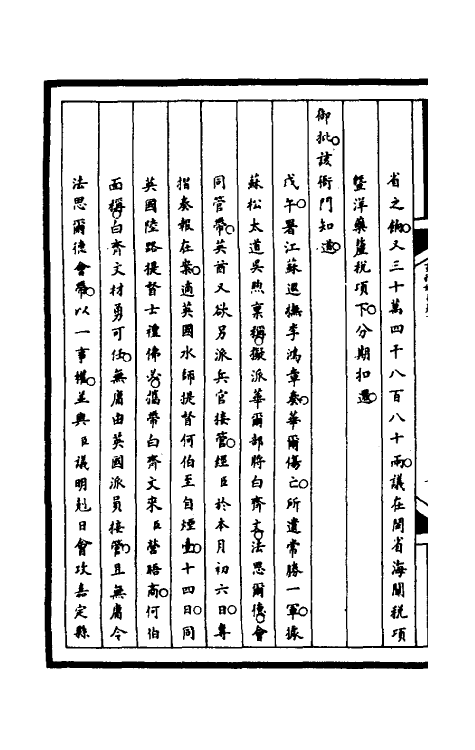 省之餉又三十萬四千八百八十兩議在閩省海關稅項
暨洋藥釐稅項下分期扣還
御批該衙門知道
戊午署江蘇巡撫李鴻章奏華爾傷亡所遺常勝一軍據
蘇松太道吳煦稟稱擬派華爾部將白齊文法思爾德會
同管帶英酋又欲另派兵官接管經臣於本月初六日專
摺奏報在案適英國水師提督何伯至自煙臺十四日同
英國陸路提督士禮佛並攜帶白齊文來臣營晤商何伯
面稱白齊文材勇可任無庸由英國派員接管且無庸令
法思爾德會帶以一事權並與臣議明尅日會攻嘉定縣